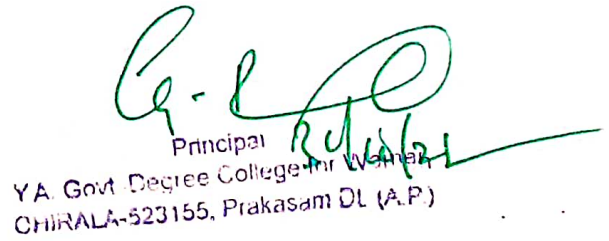 Principal
Y.A. Govt. Degree College for Women
CHIRALA-523155, Prakasam Dt. (A.P.)